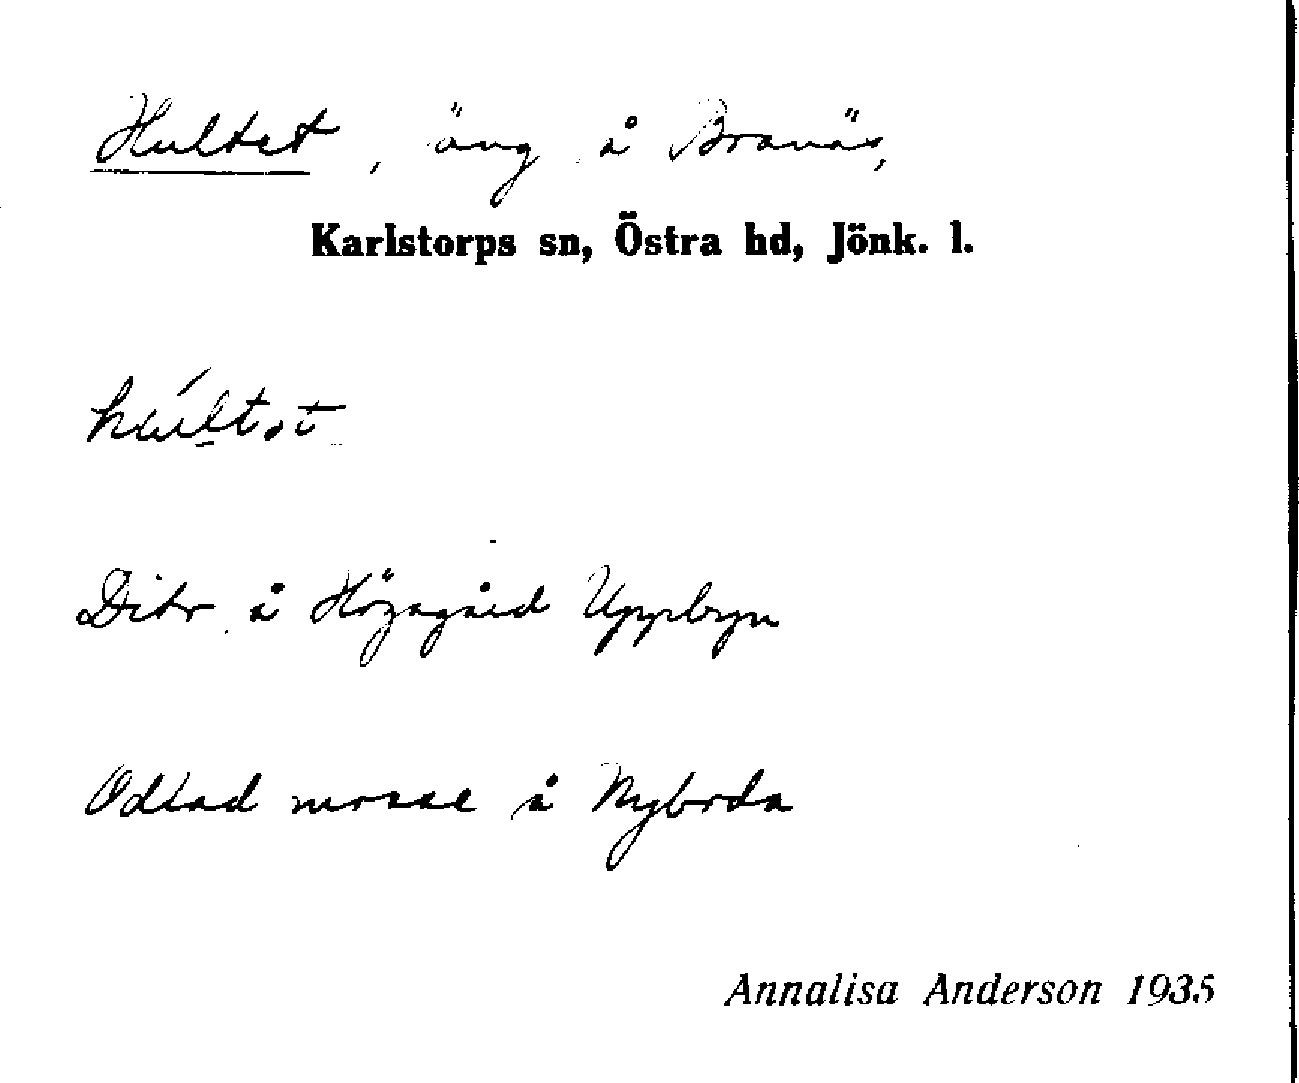 Hultet, äng å Branäs,
Karlstorps sn, Östra hd, Jönk. l.
Ditr å Högagård Uppbyn
Odlad mosse å Nybrda
Annalisa Anderson 1935